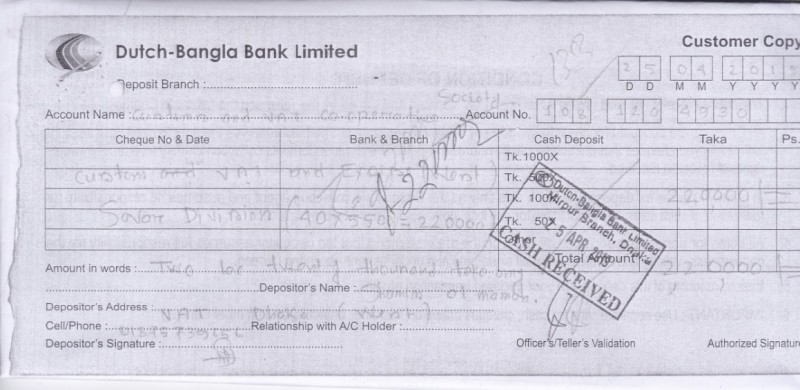 Dutch-Bangla Bank Limited
Customer Copy
25 04 201
D D M M Y Y Y Y
Deposit Branch :
Society
Account Name : Customs and VAT Co-operative
Account No. 108 120 4930
Cheque No & Date Bank & Branch Cash Deposit Taka Ps.
Tk. 1000X
Customs and VAT and
Tk. 500X
Tk. 100X 220000/=
Savar Division 40X5500=220000 Tk. 50X
Other
Total Amount : 220000/=
Dutch-Bangla Bank Limited
Mirpur Branch, Dhaka
25 APR
CASH RECEIVED
Amount in words : Two lac twenty thousand taka only
Depositor's Name : Shamim al mamun.
Depositor's Address : VAT Dhaka (West)
Cell/Phone : Relationship with A/C Holder :
Depositor's Signature : Officer's/Teller's Validation Authorized Signatur